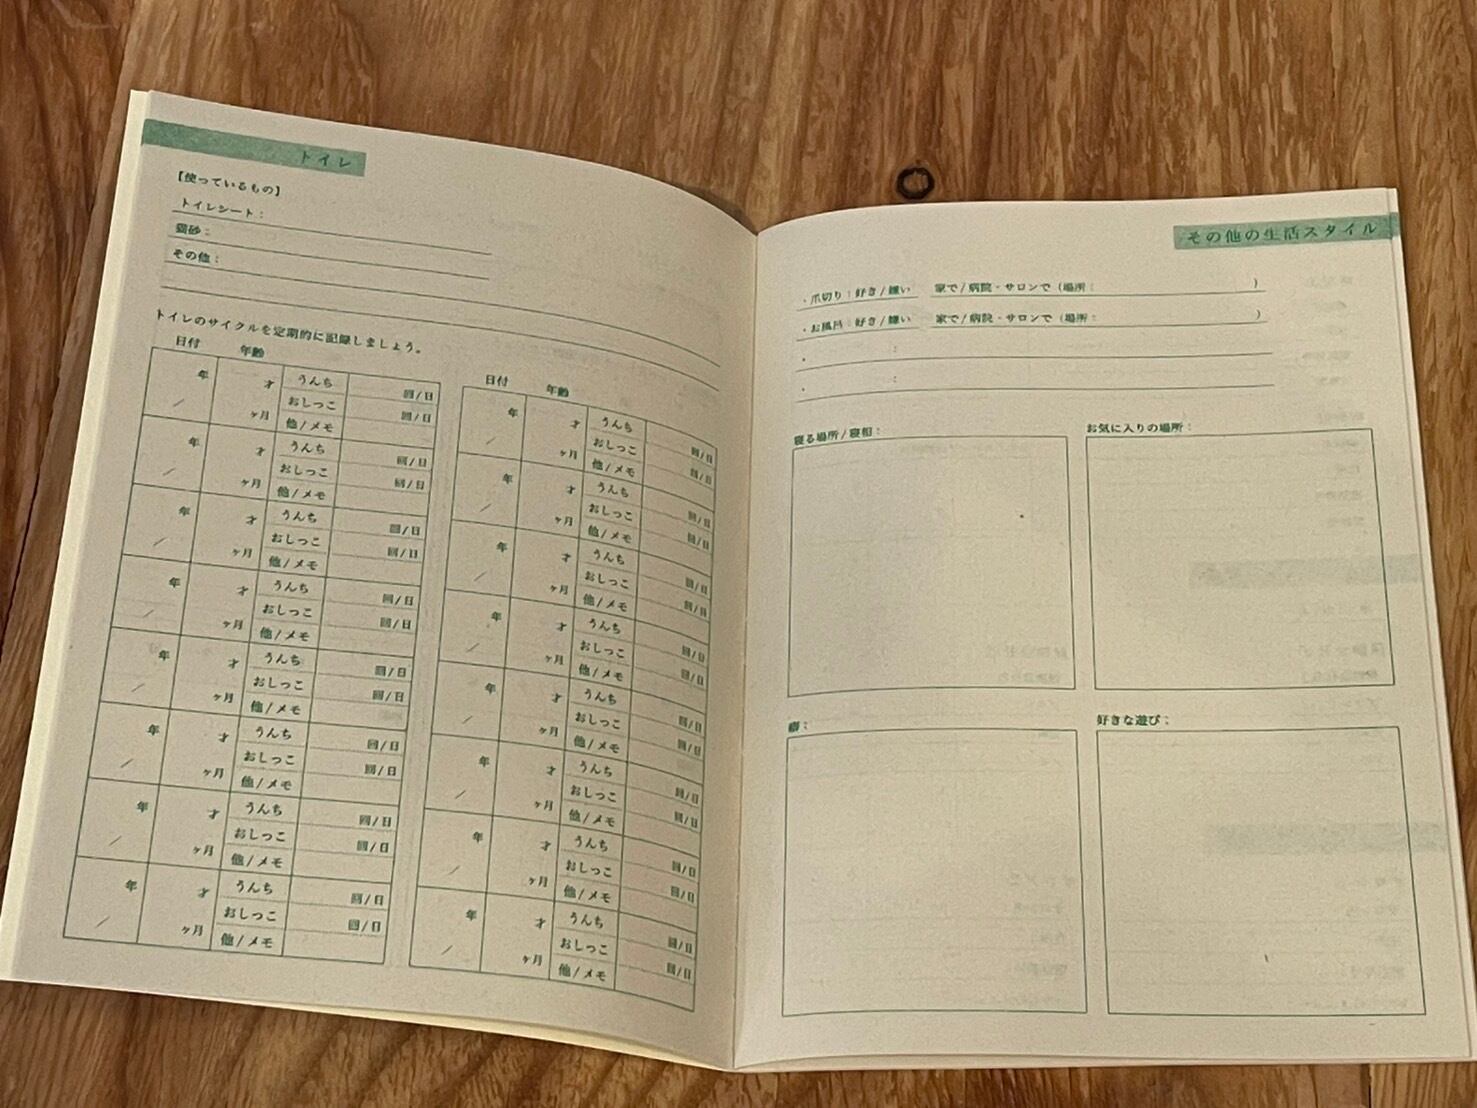 トイレ
【使っているもの】
トイレシート：
猫砂：
その他：
トイレのサイクルを定期的に記録しましょう。
日付 年齢
年 才 うんち 回/日
/ おしっこ 回/日
ヶ月 他/メモ
年 才 うんち 回/日
/ おしっこ 回/日
ヶ月 他/メモ
年 才 うんち 回/日
/ おしっこ 回/日
ヶ月 他/メモ
年 才 うんち 回/日
/ おしっこ 回/日
ヶ月 他/メモ
年 才 うんち 回/日
/ おしっこ 回/日
ヶ月 他/メモ
年 才 うんち 回/日
/ おしっこ 回/日
ヶ月 他/メモ
年 才 うんち 回/日
/ おしっこ 回/日
ヶ月 他/メモ
年 才 うんち 回/日
/ おしっこ 回/日
ヶ月 他/メモ
日付 年齢
年 才 うんち 回/日
/ おしっこ 回/日
ヶ月 他/メモ
年 才 うんち 回/日
/ おしっこ 回/日
ヶ月 他/メモ
年 才 うんち 回/日
/ おしっこ 回/日
ヶ月 他/メモ
年 才 うんち 回/日
/ おしっこ 回/日
ヶ月 他/メモ
年 才 うんち 回/日
/ おしっこ 回/日
ヶ月 他/メモ
年 才 うんち 回/日
/ おしっこ 回/日
ヶ月 他/メモ
年 才 うんち 回/日
/ おしっこ 回/日
ヶ月 他/メモ
年 才 うんち 回/日
/ おしっこ 回/日
ヶ月 他/メモ
その他の生活スタイル
・爪切り：好き/嫌い 家で/病院・サロンで（場所： ）
・お風呂：好き/嫌い 家で/病院・サロンで（場所： ）
・ ：
・ ：
寝る場所/寝相： お気に入りの場所：
癖： 好きな遊び：